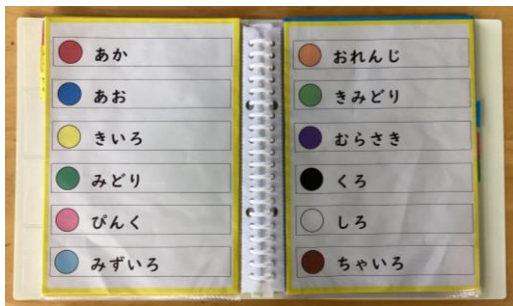 あか
あお
きいろ
みどり
ぴんく
みずいろ
おれんじ
きみどり
むらさき
くろ
しろ
ちゃいろ